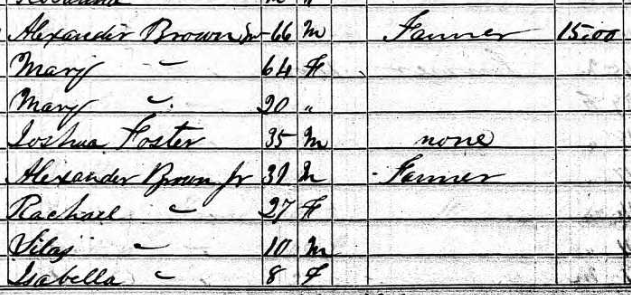 Alexander Brown Sr 66 M Farmer 1500
Mary " 64 F
Mary " 20 "
Joshua Foster 35 M none
Alexander Brown Jr 31 M Farmer
Rachael " 27 F
Silas " 10 M
Isabella " 8 F